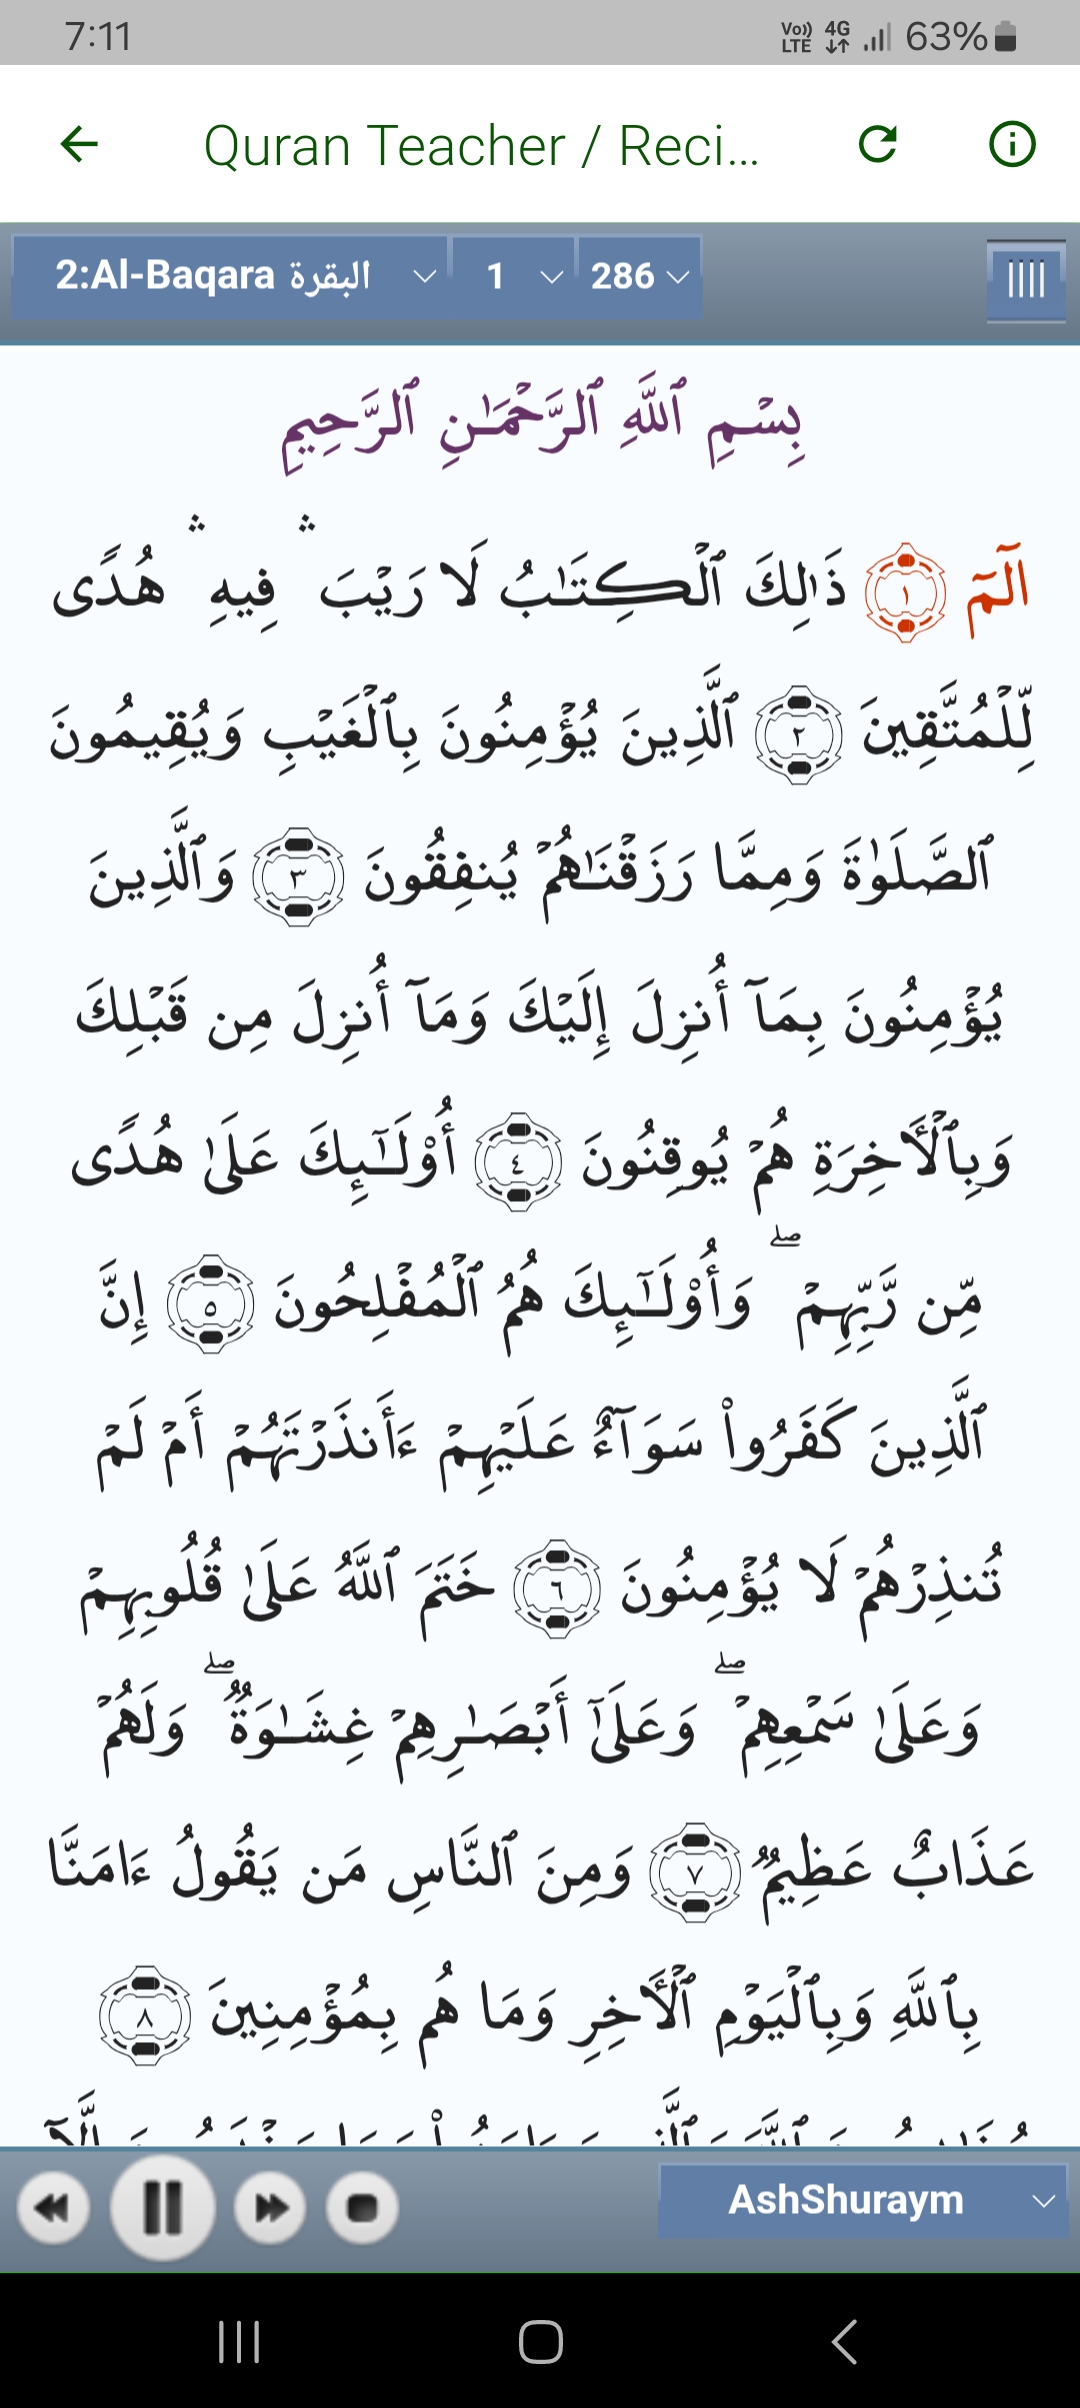 7:11 Vo)) LTE 4G 63%
Quran Teacher / Reci...
2:Al-Baqara البقرة 1 286
بِسْمِ ٱللَّهِ ٱلرَّحْمَـٰنِ ٱلرَّحِيمِ
الٓمٓ ١ ذَٰلِكَ ٱلْكِتَـٰبُ لَا رَيْبَ ۛ فِيهِ ۛ هُدًى
لِّلْمُتَّقِينَ ٢ ٱلَّذِينَ يُؤْمِنُونَ بِٱلْغَيْبِ وَيُقِيمُونَ
ٱلصَّلَوٰةَ وَمِمَّا رَزَقْنَـٰهُمْ يُنفِقُونَ ٣ وَٱلَّذِينَ
يُؤْمِنُونَ بِمَآ أُنزِلَ إِلَيْكَ وَمَآ أُنزِلَ مِن قَبْلِكَ
وَبِٱلْـَٔاخِرَةِ هُمْ يُوقِنُونَ ٤ أُو۟لَـٰٓئِكَ عَلَىٰ هُدًى
مِّن رَّبِّهِمْ ۖ وَأُو۟لَـٰٓئِكَ هُمُ ٱلْمُفْلِحُونَ ٥ إِنَّ
ٱلَّذِينَ كَفَرُوا۟ سَوَآءٌ عَلَيْهِمْ ءَأَنذَرْتَهُمْ أَمْ لَمْ
تُنذِرْهُمْ لَا يُؤْمِنُونَ ٦ خَتَمَ ٱللَّهُ عَلَىٰ قُلُوبِهِمْ
وَعَلَىٰ سَمْعِهِمْ ۖ وَعَلَىٰٓ أَبْصَـٰرِهِمْ غِشَـٰوَةٌ ۖ وَلَهُمْ
عَذَابٌ عَظِيمٌ ٧ وَمِنَ ٱلنَّاسِ مَن يَقُولُ ءَامَنَّا
بِٱللَّهِ وَبِٱلْيَوْمِ ٱلْـَٔاخِرِ وَمَا هُم بِمُؤْمِنِينَ ٨
AshShuraym